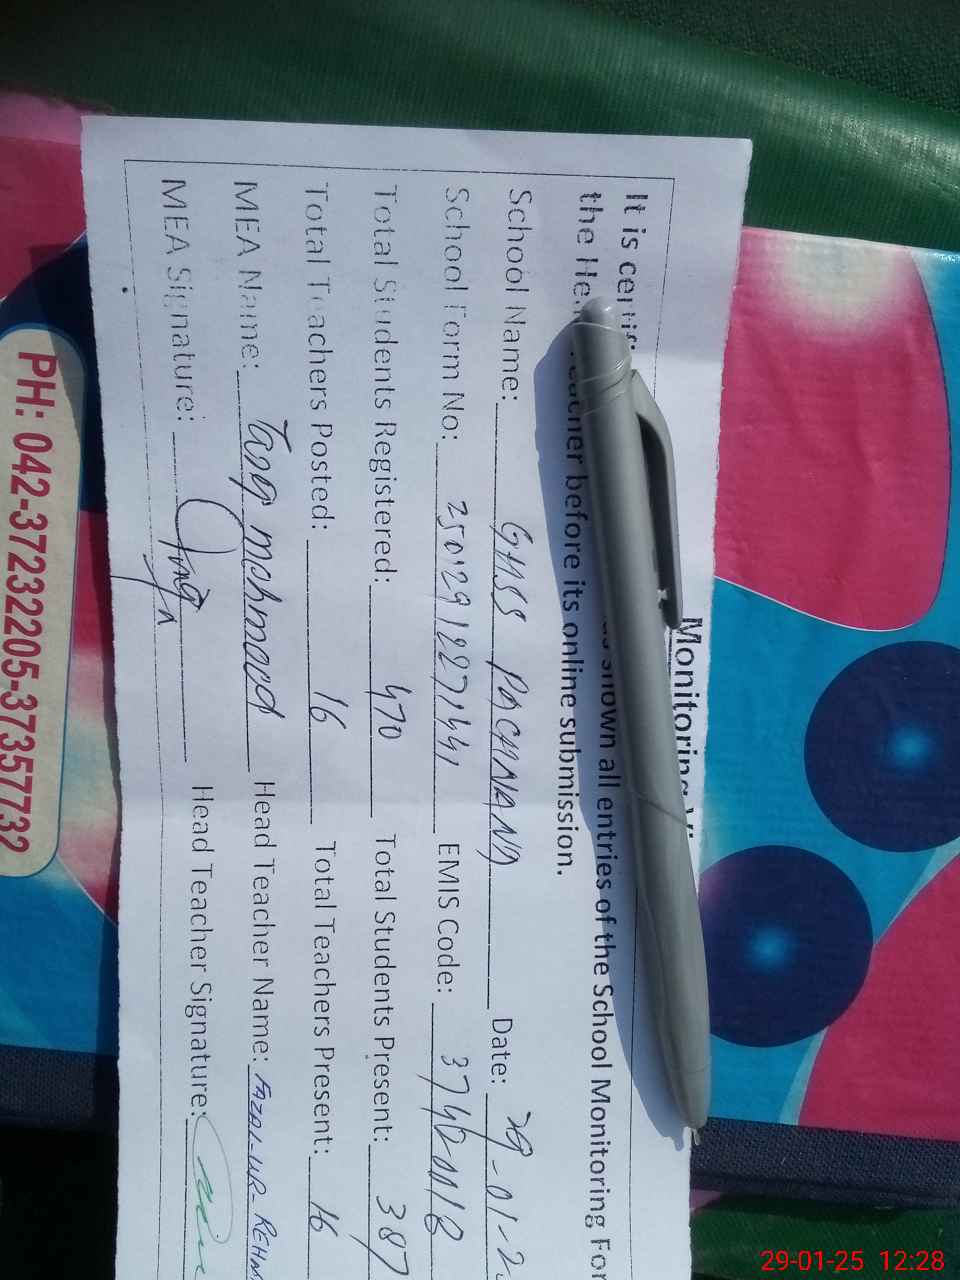 Monitoring Vi
It is certifi shown all entries of the School Monitoring For
the He eacher before its online submission.
School Name: GHSS PACHNAND Date: 29-01-2
School Form No: EMIS Code:
Total Students Registered: 470 Total Students Present: 387
Total Teachers Posted: 16 Total Teachers Present: 16
MEA Name: Tariq mehmood Head Teacher Name: FAZAL-UR-REHM
MEA Signature: Head Teacher Signature:
PH: 042-37232205-37357732
29-01-25 12:28